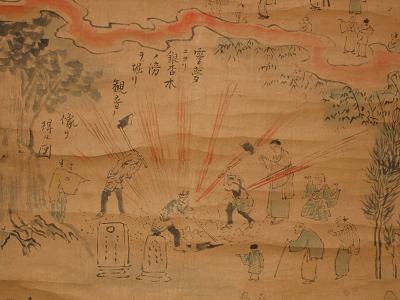 霊夢
ニヨリ
銀杏木
ノ傍
ヲ堀リ
観音ノ
像ヲ
得ル図